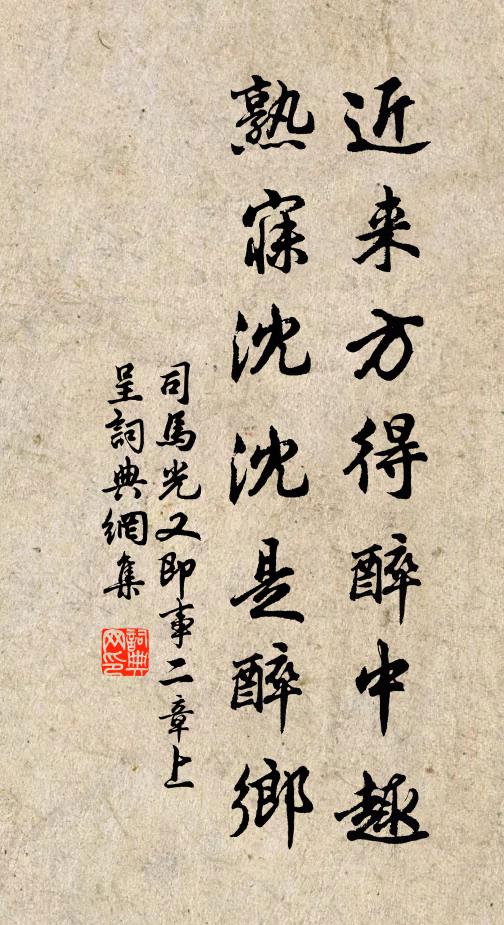 近来方得醉中趣
熟寐沈沈是醉鄉
司馬光又即事二章上
呈詞典網集
詞典网印